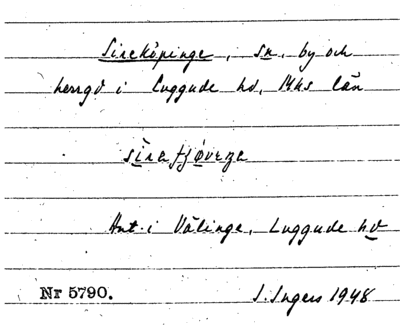 Sireköpinge, sn, by och
herrgd i Luggude hd, Mhs län
sìrafjǿvenga
Ant. i Välinge, Luggude hd
Nr 5790. I. Ingers 1948